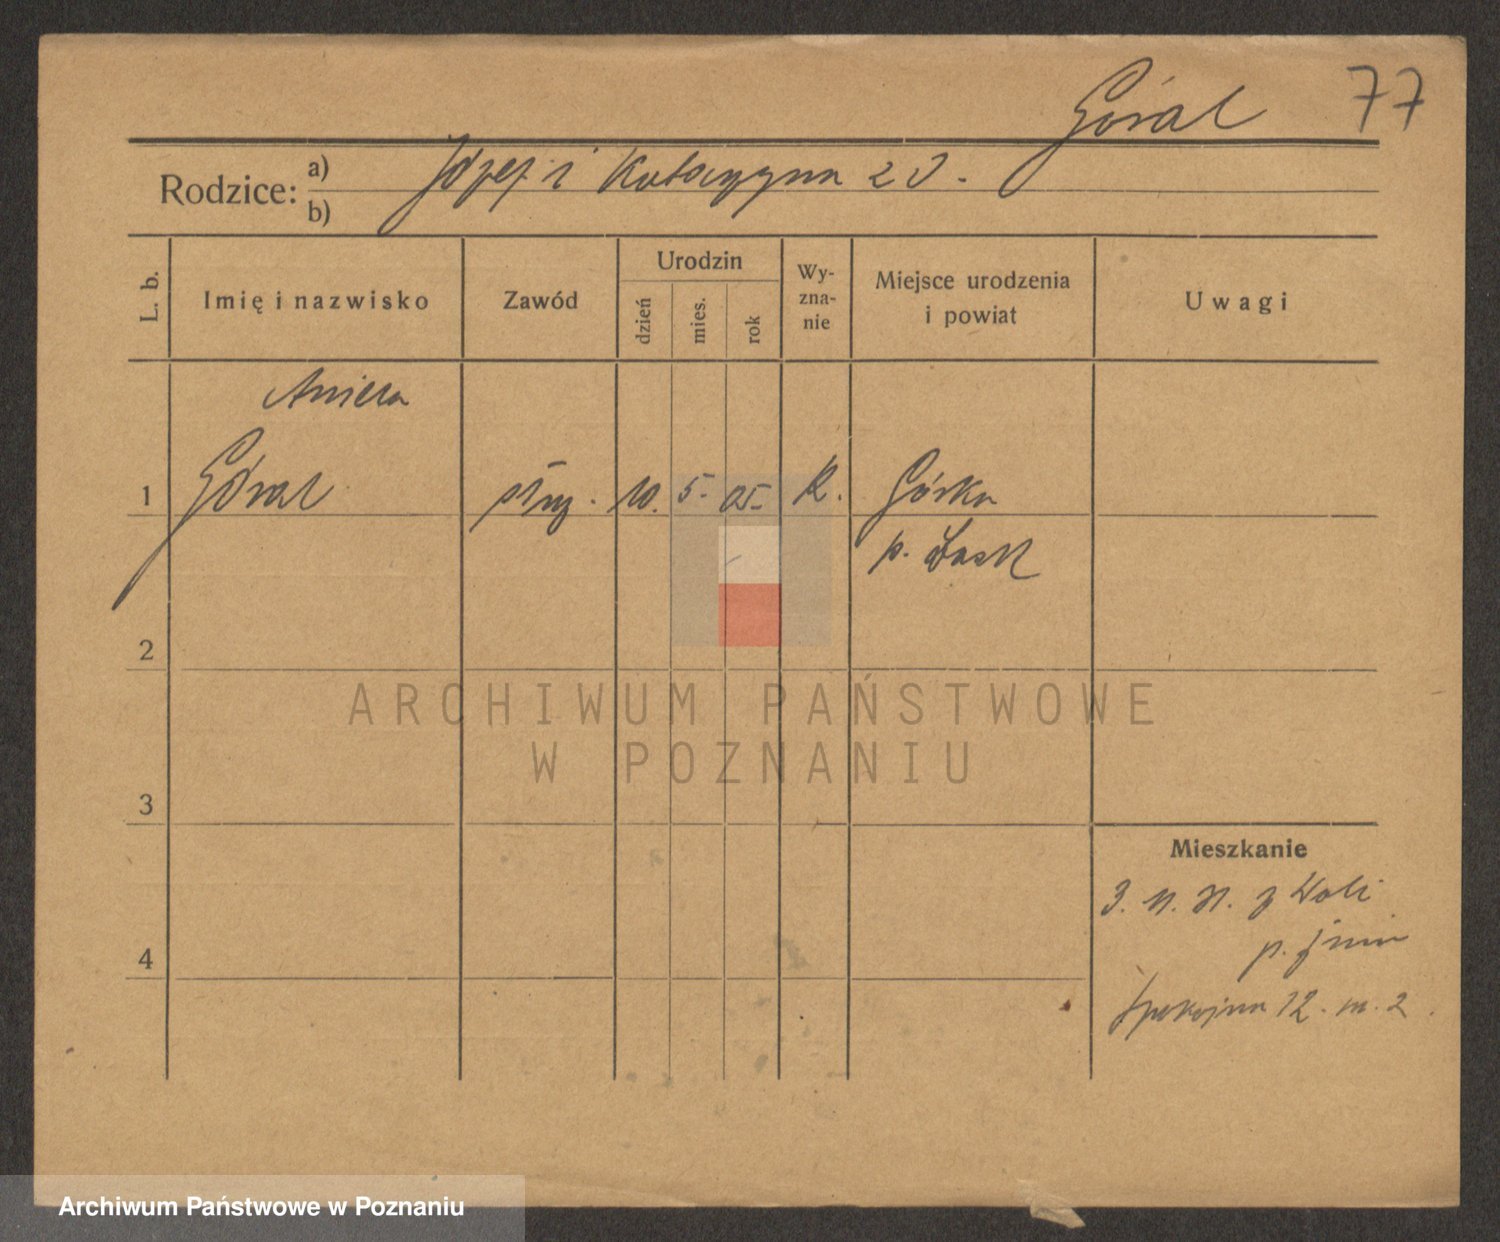 Góral 77
Rodzice: a) Józef i Katarzyna z D.
b)
L. b.
Imię i nazwisko
Zawód
Urodzin
dzień
mies.
rok
Wy-
zna-
nie
Miejsce urodzenia
i powiat
Uwagi
Aniela
1 Góral służ. 10. 5. 05 R. Górka
p. Łask
2
ARCHIWUM PAŃSTWOWE
W POZNANIU
3
Mieszkanie
3. 11. 31. z Woli
4
p. Żnin
Spokojna 12. m. 2.
Archiwum Państwowe w Poznaniu